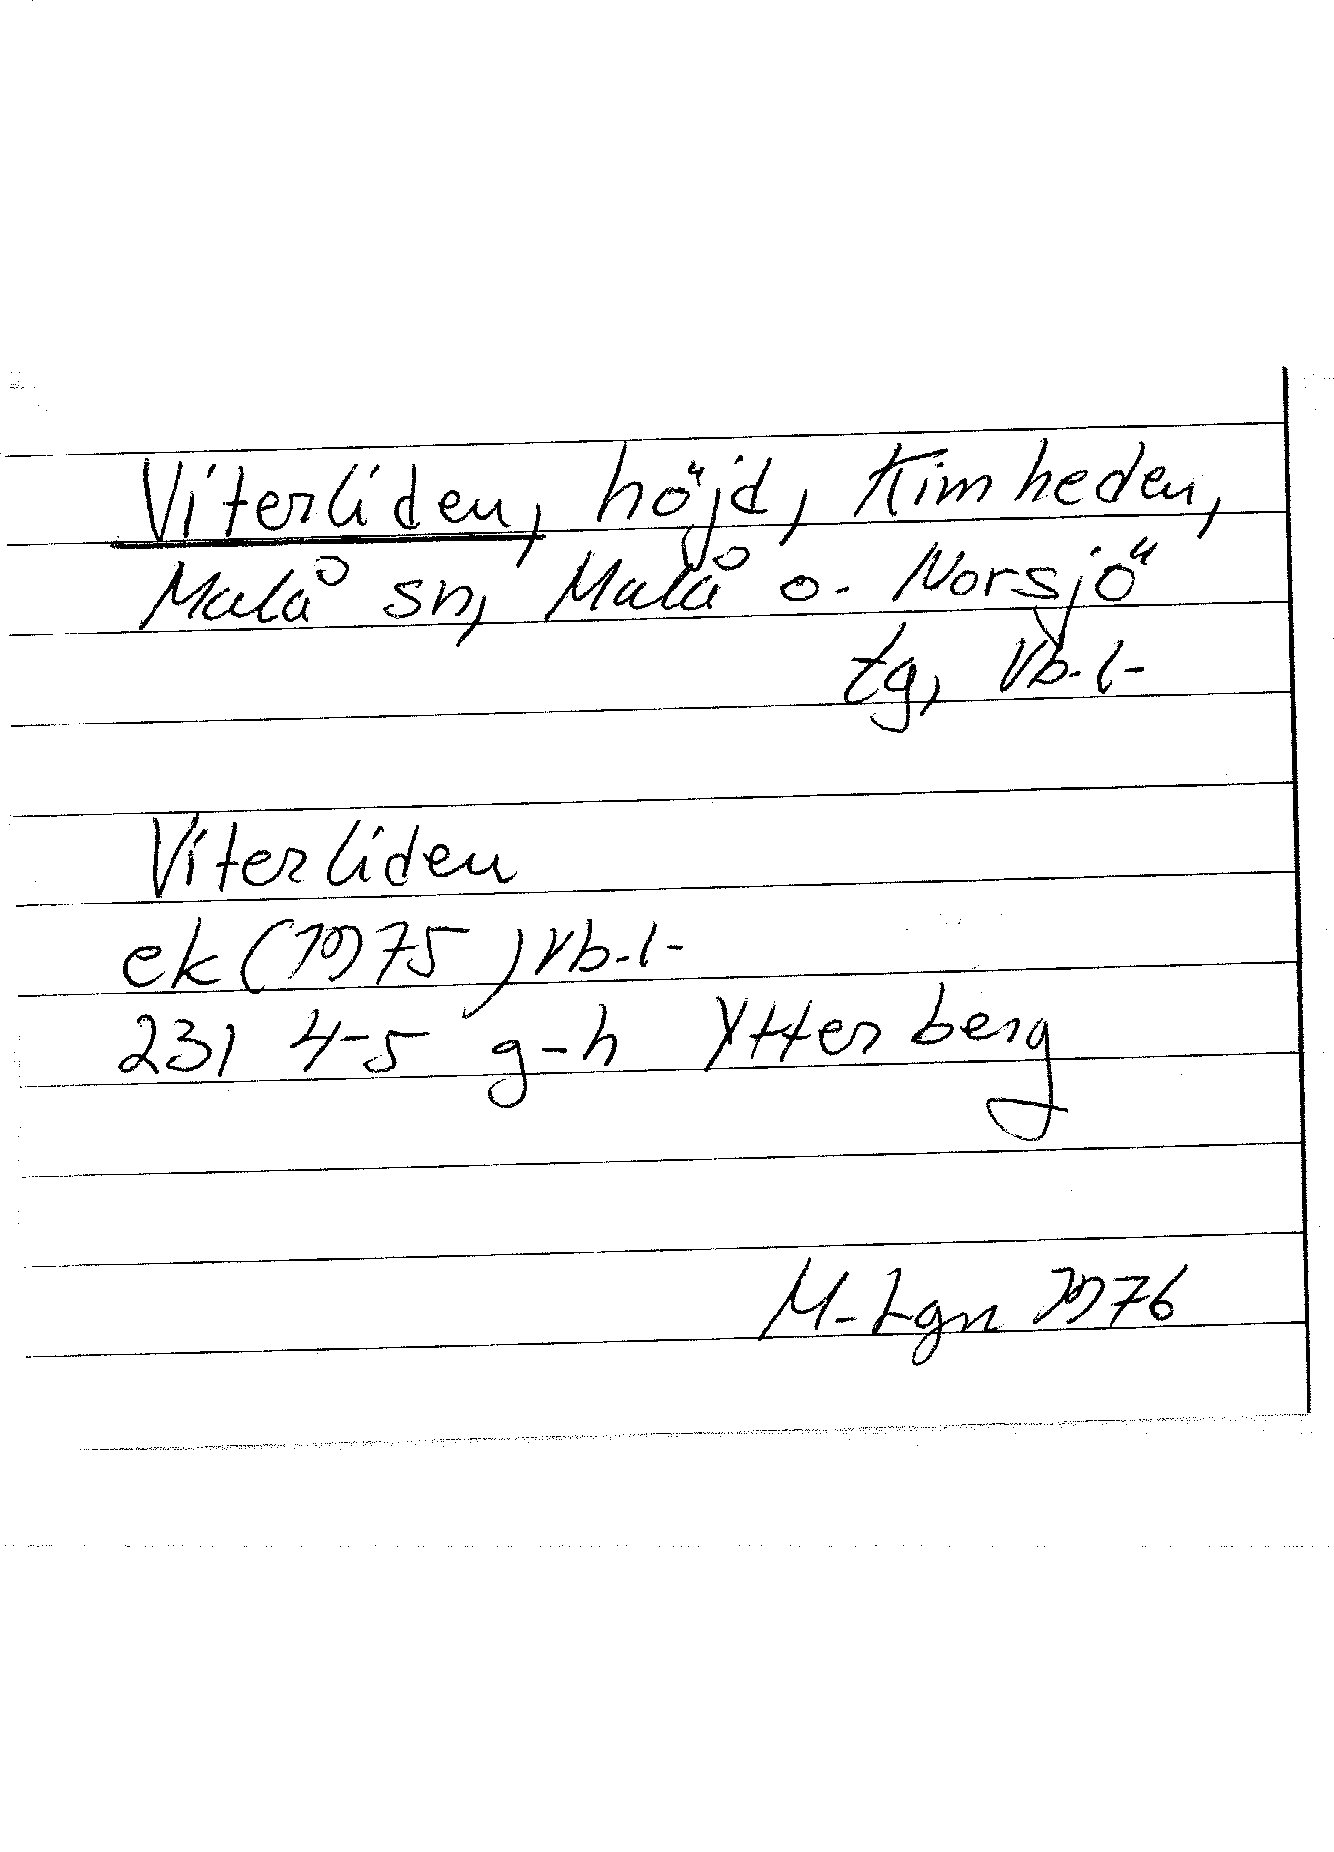 Viterliden, höjd, Kimheden,
Malå sn, Malå o. Norsjö
tg, Vb. l.
Viterliden
ek (1975) Vb. l.
231 4-5 g-h Ytterberg
M. Lgn 1976